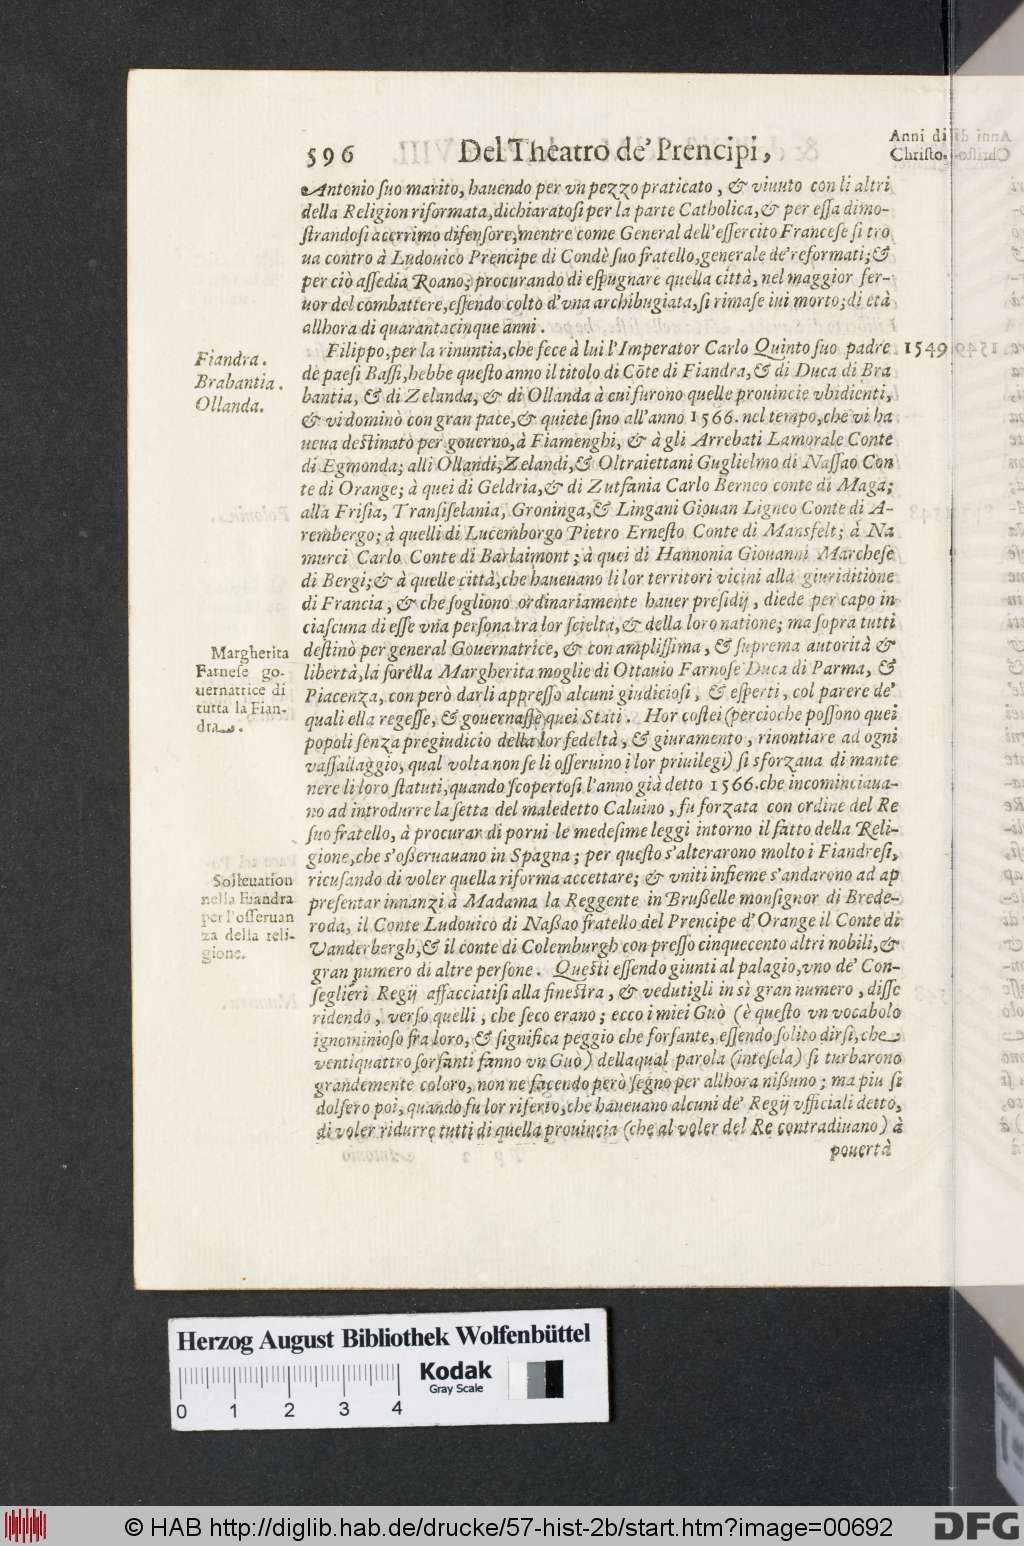 596 Del Theatro de' Prencipi,
Anni di
Christo.
Antonio ſuo marito, hauendo per vn pezzo praticato, & viuuto con li altri
della Religion riformata, dichiaratoſi per la parte Catholica, & per eſſa dimo-
ſtrandoſi acerrimo difenſore, mentre come General dell'eſſercito Franceſe ſi tro
ua contro à Ludouico Prencipe di Condè ſuo fratello, generale de' reformati; &
per ciò aſſedia Roano; procurando di eſpugnare quella città, nel maggior fer-
uor del combattere, eſſendo colto d'vna archibugiata, ſi rimaſe iui morto; di età
allhora di quarantacinque anni.
Filippo, per la rinuntia, che fece à lui l'Imperator Carlo Quinto ſuo padre 1549
de paeſi Baſſi, hebbe queſto anno il titolo di Cōte di Fiandra, & di Duca di Bra
bantia, & di Zelanda, & di Ollanda à cui furono quelle prouincie vbidienti,
& vi dominò con gran pace, & quiete ſino all'anno 1566. nel tempo, che vi ha
ueua deſtinato per gouerno, à Fiamenghi, & à gli Arrebati Lamorale Conte
di Egmonda; alli Ollandi, Zelandi, & Oltraiettani Guglielmo di Naſſao Con
te di Orange; à quei di Geldria, & di Zutfania Carlo Berneo conte di Maga;
alla Friſia, Tranſiſelania, Groninga, & Lingani Giouan Ligneo Conte di A-
rembergo; à quelli di Lucemborgo Pietro Erneſto Conte di Mansfelt; à Na
murci Carlo Conte di Barlaimont; à quei di Hannonia Giouanni Marcheſe
di Bergi; & à quelle città, che haueuano li lor territori vicini alla giuriditione
di Francia, & che ſogliono ordinariamente hauer preſidij, diede per capo in
ciaſcuna di eſſe vna perſona tra lor ſcielta, & della loro natione; ma ſopra tutti
deſtinò per general Gouernatrice, & con ampliſſima, & ſuprema autorità &
libertà, la ſorella Margherita moglie di Ottauio Farnoſe Duca di Parma, &
Piacenza, con però darli appreſſo alcuni giudicioſi, & eſperti, col parere de'
quali ella regeſſe, & gouernaſſe quei Stati. Hor coſtei (percioche poſſono quei
popoli ſenza pregiudicio della lor fedeltà, & giuramento, rinontiare ad ogni
vaſſallaggio, qual volta non ſe li oſſeruino i lor priuilegi) ſi sforzaua di mante
nere li loro ſtatuti, quando ſcopertoſi l'anno già detto 1566. che incominciaua-
no ad introdurre la ſetta del maledetto Caluino, fu forzata con ordine del Re
ſuo fratello, à procurar di porui le medeſime leggi intorno il fatto della Reli-
gione, che s'oſſeruauano in Spagna; per queſto s'alterarono molto i Fiandreſi,
ricuſando di voler quella riforma accettare; & vniti inſieme s'andarono ad ap
preſentar innanzi à Madama la Reggente in Bruſſelle monſignor di Brede-
roda, il Conte Ludouico di Naſſao fratello del Prencipe d'Orange il Conte di
Vanderbergh, & il conte di Colemburgh con preſſo cinquecento altri nobili, &
gran numero di altre perſone. Queſti eſſendo giunti al palagio, vno de' Con-
ſeglieri Regij affacciatiſi alla fineſtra, & vedutigli in sì gran numero, diſſe
ridendo, verſo quelli, che ſeco erano; ecco i miei Guò (è queſto vn vocabolo
ignominioſo fra loro, & ſignifica peggio che forfante, eſſendo ſolito dirſi, che
ventiquattro forfanti fanno vn Guò) della qual parola (inteſela) ſi turbarono
grandemente coloro, non ne facendo però ſegno per allhora niſſuno; ma piu ſi
dolſero poi, quando fu lor riferto, che haueuano alcuni de' Regij vfficiali detto,
di voler ridurre tutti di quella prouincia (che al voler del Re contradiuano) à
pouertà
Fiandra.
Brabantia.
Ollanda.
Margherita
Farneſe go-
uernatrice di
tutta la Fian-
dra.
Solleuation
nella Fiandra
per l'oſſeruan
za della reli-
gione.
Herzog August Bibliothek Wolfenbüttel
Kodak
Gray Scale
0 1 2 3 4
© HAB http://diglib.hab.de/drucke/57-hist-2b/start.htm?image=00692
DFG